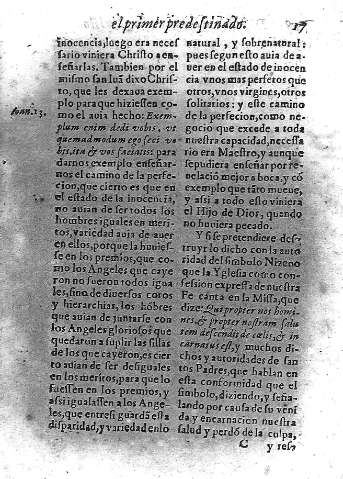 el primer predestinado.
17
inocencia, luego era neces
sario viniera Christo a en-
señarlas. Tambien por el
mismo san Iuã dixo Chris-
to, que les dexaua exem-
plo para que hiziessen co-
Ioan. 13.
mo el auia hecho: Exem-
plum enim dedi vobis, vt
quemadmodum ego feci vo-
bis, ita & vos faciatis para
darnos exemplo enseñar-
nos el camino de la perfe-
cion, que cierto es que en
el estado de la inocencia,
no auian de ser todos los
hombres iguales en meri-
tos, variedad auia de auer
en ellos, porque la huuies-
se en los premios, que co-
mo los Angeles que caye
ron no fueron todos igua
les, sino de diuersos coros
y hierarchias, los hõbres
que auian de juntarse con
los Angeles gloriosos que
quedaron a suplir las sillas
de los que cayeron, es cier
to auian de ser desiguales
en los meritos, para que lo
fuessen en los premios, y
assi igualassen a los Ange-
les, que entre si guardã essa
disparidad, y variedad en lo
natural, y sobrenatural:
pues segun esto auia de a-
uer en el estado de inocen
cia vnos mas perfetos que
otros, vnos virgines, otros
solitarios: y este camino
de la perfecion, como ne-
gocio que excede a toda
nuestra capacidad, necessa
rio era Maestro, y aunque
supdiera enseñar por re-
uelacion mejor a boca, y cõ
exemplo que tãto mueue,
y assi a todo esto viniera
el Hijo de Dior, quando
no huuiera pecado.
Y si se pretendiere des-
truyr lo dicho con la auto
ridad del simbolo Nizeno
que la Yglesia como con-
fession expressa de nuestra
Fe canta en la Missa, que
dize: Qui propter nos homi-
nes, & propter nostram salu
tem descendit de cœlis, & in
carnatus est, y muchos di-
chos y autoridades de san-
tos Padres, que hablan en
esta conformidad que el
simbolo, diziendo, y seña-
lando por causa de su veni
da y encarnacion nuestra
salud y perdõ de la culpa,
C
y res-